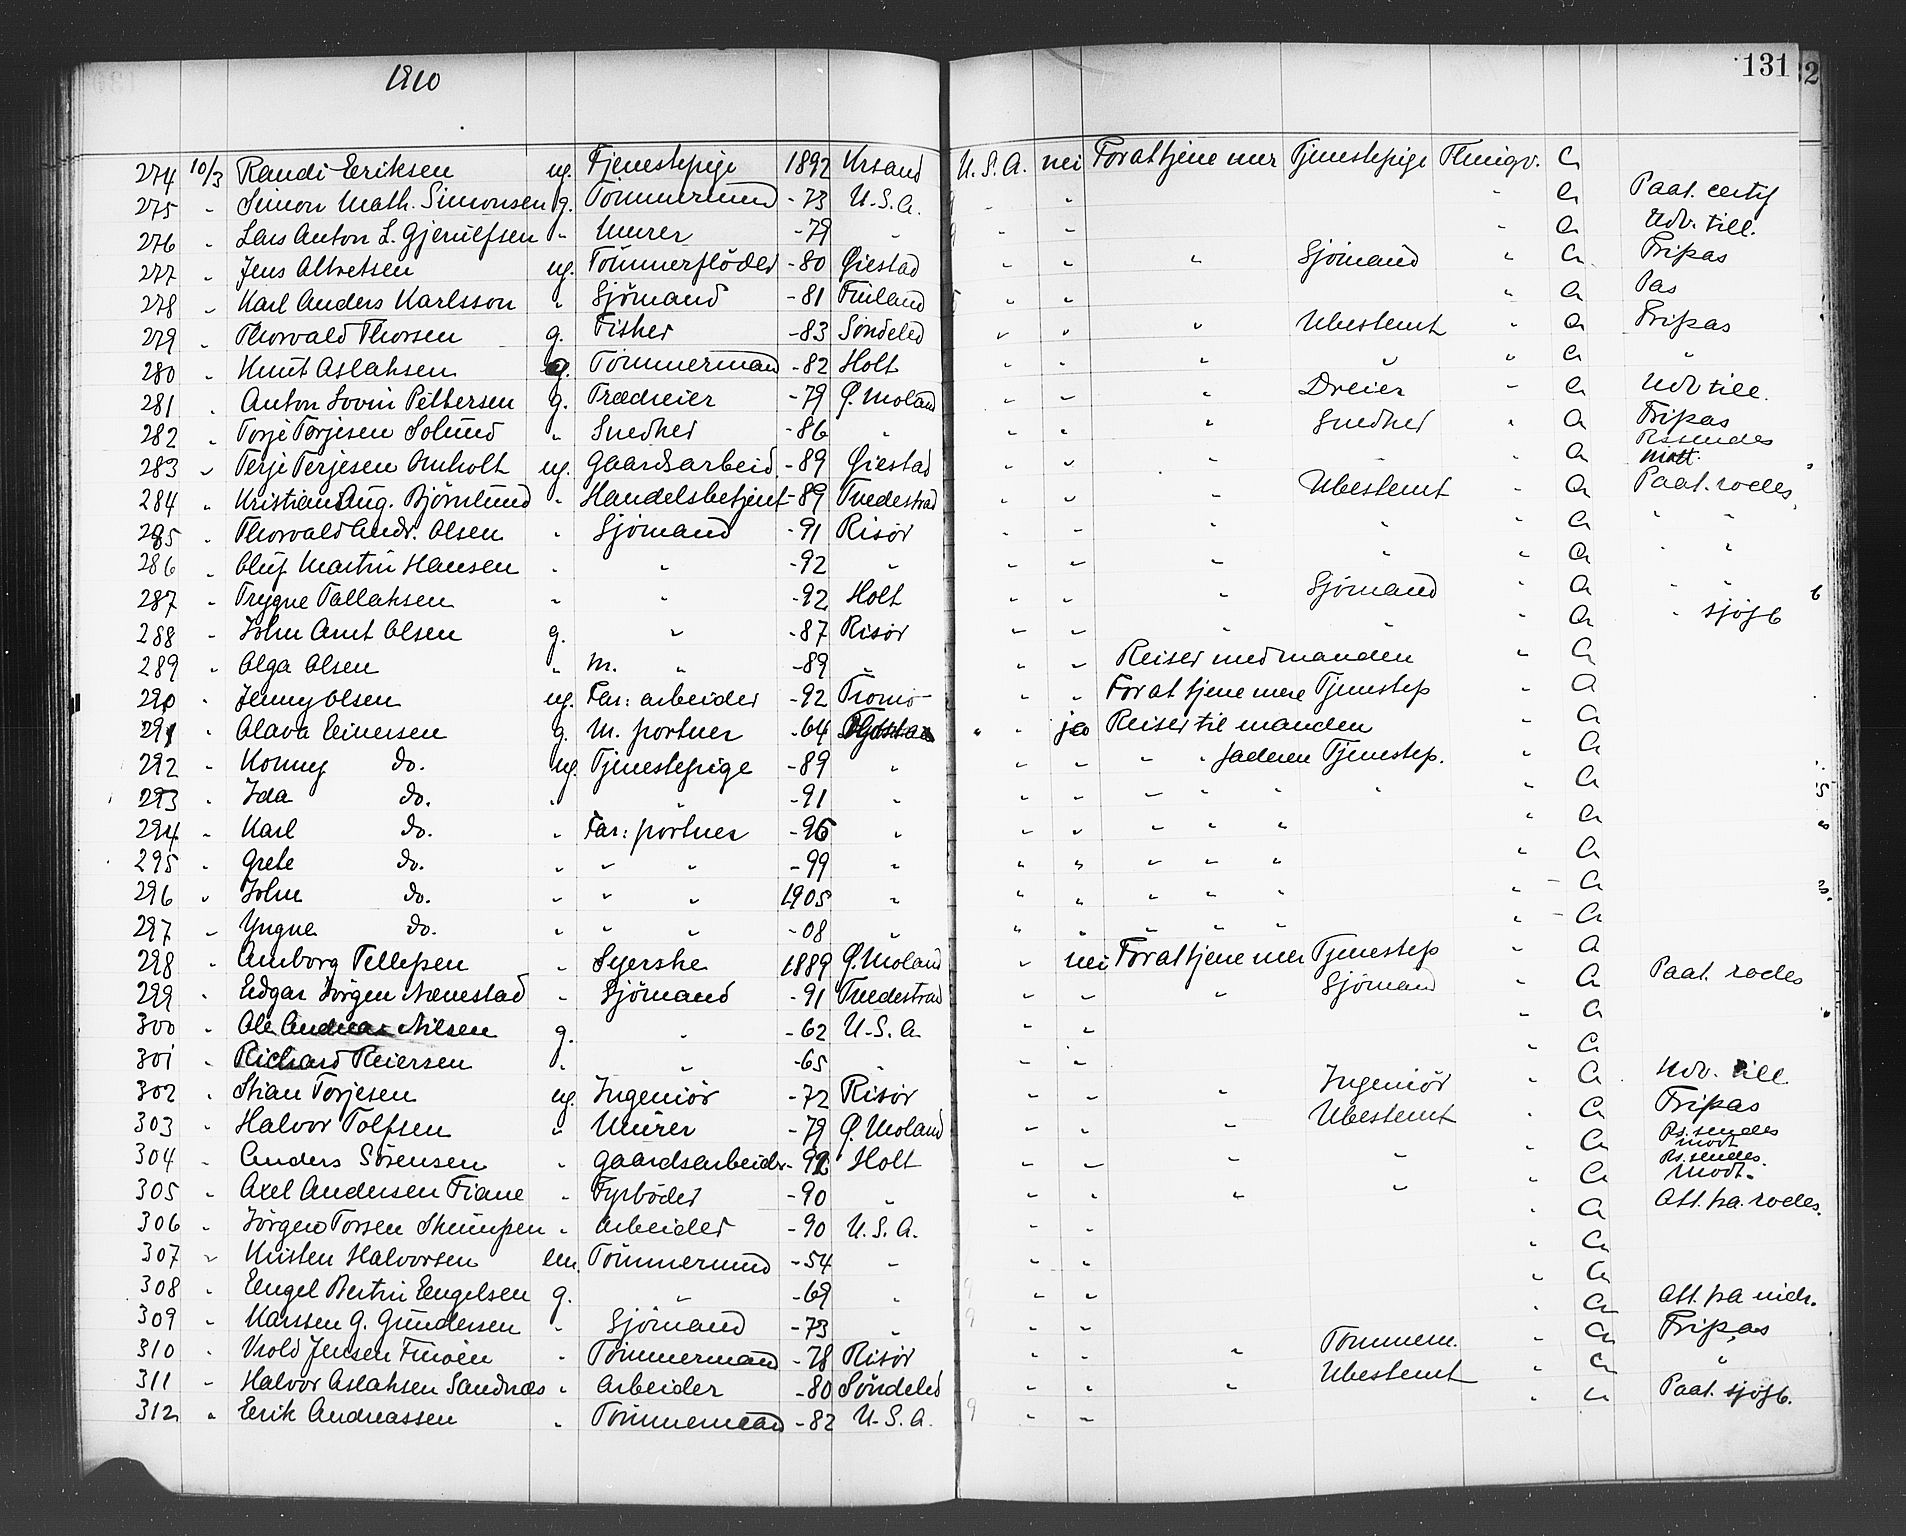 1910
131
274 10/3 Randi Eeriksen ug. Tjenestepige 1892 Krsand U.S.A. nei For at tjene mer Tjenestepige Thingv. C
275 " Simon Math. Simonsen g. Tömmermand -73 U.S.A. " " " C Paat. certf
276 " Lars Anton L. Gjerulfsen " Murer -79 " " " " C Udv. till.
277 " Jens Alfretsen ug. Tömmerfløder -80 Øiestad " " " Sjömand " C Fripas
278 " Karl Anders Karlsson " Sjömand -81 Finland " " " C Pas
279 " Thorvald Thorsen g. Fisher -83 Söndeled " " " Ubestemt " C Fripas
280 " Knut Aslaksen ug. Tömmermand -82 Holt " " " " " C "
281 " Anton Lovin Pettersen g. Trædreier -79 Ø. Moland " " " Dreier " C Udv till.
282 " Torje Terjesen Solund " Snedker -86 " " " " Snedker " C Fripas
283 " Terje Terjesen Omholt ug. Gaardsarbeid -89 Øiestad " " " " " C Rs. sendes mott
284 " Kristian Aug. Björnlund " Handelsbetjent -89 Tvedestrad " " " Ubestemt " C Paat. rodes.
285 " Thorvald Andr. Olsen " Sjömand -91 Risör " " " " " C " "
286 " Oluf Martin Hansen " " -92 " " " " " " C " "
287 " Trygve Tallaksen " " -92 Holt " " " Sjömand " C " "
288 " John Arnt Olsen g. " -87 Risör " " " " " C " sjøfb
289 " Olga Olsen " M. " -89 " " " Reiser med manden " C
290 " Jenny Olsen ug. Far: arbeider -92 Tromö " " For at tjene mere Tjenestep " C
291 " Olava Einersen g. M. portner -64 " " ja Reiser til manden " C
292 " Konny do. ug. Tjenestepige -89 " " " " " faderen Tjenestep. " C
293 " Ida do. " " -91 " " " " " " " C
294 " Karl do. " Far: portner -96 " " " " " " " C
295 " Grete do. " " " -99 " " " " " " " C
296 " John do. " " " 1905 " " " " " " " C
297 " Yngve do. " " " -08 " " " " " " " C
298 " Amborg Tellefsen " Syerske 1889 Ø. Moland " nei For at tjene mer Tjenestep " C
299 " Edgar Jörgen Nævestad " Sjömand -91 Tvedestrad " " " Sjömand " C Paat. rodes
300 " Ole Andreas Nilsen g. " -62 U.S.A " " " C
301 " Richard Reiersen " " -65 " " " " C
302 " Stian Torjesen ug. Ingeniör -72 Risör " " " Ingeniör " C Udv. till
303 " Halvor Tolfsen " Murer -79 Ø. Moland " " " Ubestemt " C Fripas
304 " Anders Sørensen " Gaardsarbeider -92 Holt " " " " C Rs. sendes modt
305 " Axel Andersen Fiane " Fyrböder -90 " " " " " " C Rs. sendes. modt.
306 " Jörgen Torsen " Arbeider -90 U.S.A. " " " C Att. fra rodes.
307 " Kristen Halvorsen em. Tömmermand -54 " " " C
308 " Eengel Bertin Eengelsen g. " -69 " " " " C
309 " Karsten G. Gundersen " Sjömand -73 " " " " C Att. fra
310 " Vrold Jensen " Tömmermand -78 Risör " " " Tömmerm. " C Fripas
311 " Halvor Aslaksen Sandnæs " Arbeider -80 Söndeled " " " Ubestemt " C "
312 " Eerik Andreassen " Tömmermand -82 U.S.A. " " " C Paat. sjøfb.